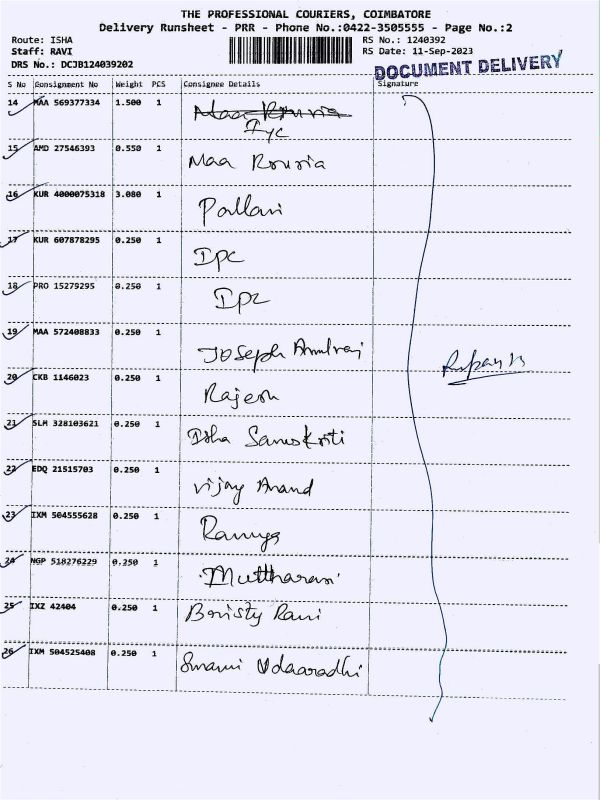 THE PROFESSIONAL COURIERS, COIMBATORE
Delivery Runsheet - PRR - Phone No.:0422-3505555 - Page No.:2
Route: ISHA RS No.: 1240392
Staff: RAVI RS Date: 11-Sep-2023
DRS No.: DCJB124039202
DOCUMENT DELIVERY
S No Consignment No Weight PCS Consignee Details Signature
14 MAA 569377334 1.500 1
Iyc
15 AMD 27546393 0.550 1 Maa
16 KUR 4000075318 3.080 1 Pallavi
17 KUR 607878295 0.250 1 IPC
18 PRO 15279295 0.250 1 IPC
19 MAA 572408833 0.250 1 Joseph Amulraj
20 CKB 1146023 0.250 1 Rajesh
21 SLM 328103621 0.250 1 Isha Samskriti
22 EDQ 21515703 0.250 1 Vijay Anand
23 IXM 504555628 0.250 1 Ramya
24 NGP 518276229 0.250 1
25 IXZ 42404 0.250 1 Rani
26 IXM 504525408 0.250 1 Swami